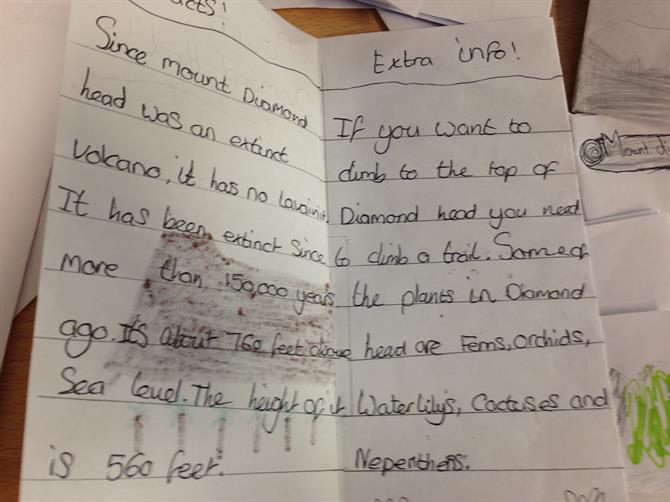 acts!
Since mount Diamond
head was an extinct
volcano, it has no lava in it.
It has been extinct since
more than 150,000 years
ago. It's about 760 feet above
Sea level. The height of it
is 560 feet.
Extra info!
If you want to
climb to the top of
Diamond head you need
to climb a trail. Some of
the plants in Diamond
head are Ferns, Orchids,
Waterlily's, Cactuses and
Nepenthens.
Mount di